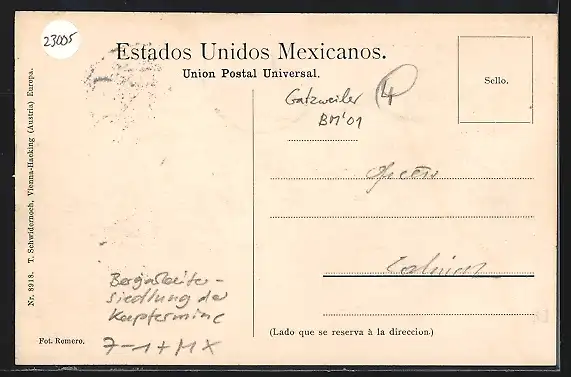 23005
Estados Unidos Mexicanos.
Union Postal Universal.
Sello.
Gatzweiler 4
BM'01
Nr. 8918. T. Schwidernoch, Vienna-Hacking (Austria) Europa.
Bergarbeiter-
siedlung der
Kupfermine
7-1+MX
Fot. Romero.
(Lado que se reserva à la direccion.)